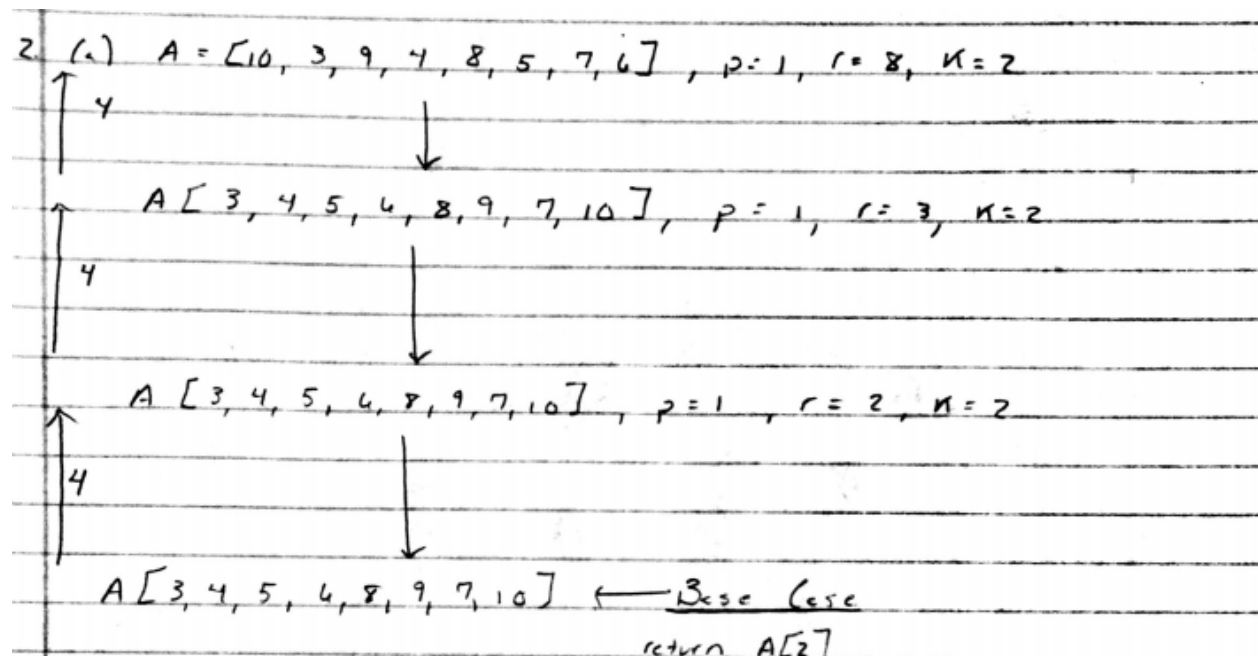 2. (a) A = [10, 3, 9, 4, 8, 5, 7, 6] , p = 1, r = 8, K = 2
4
A [ 3, 4, 5, 6, 8, 9, 7, 10 ], p = 1, r = 3, K = 2
4
A [3, 4, 5, 6, 8, 9, 7, 10] , p = 1 , r = 2, K = 2
4
A [3, 4, 5, 6, 8, 9, 7, 10] ← Base Case
return A[2]